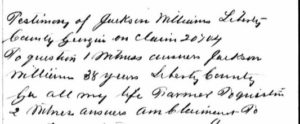 Testimony of Jackson Williams Liberty
County Georgia on Claim 20704
To question 1 Witness answers Jackson
Williams 38 years Liberty County
Ga all my life Farmer To question
2 Witness answers am Claimant To